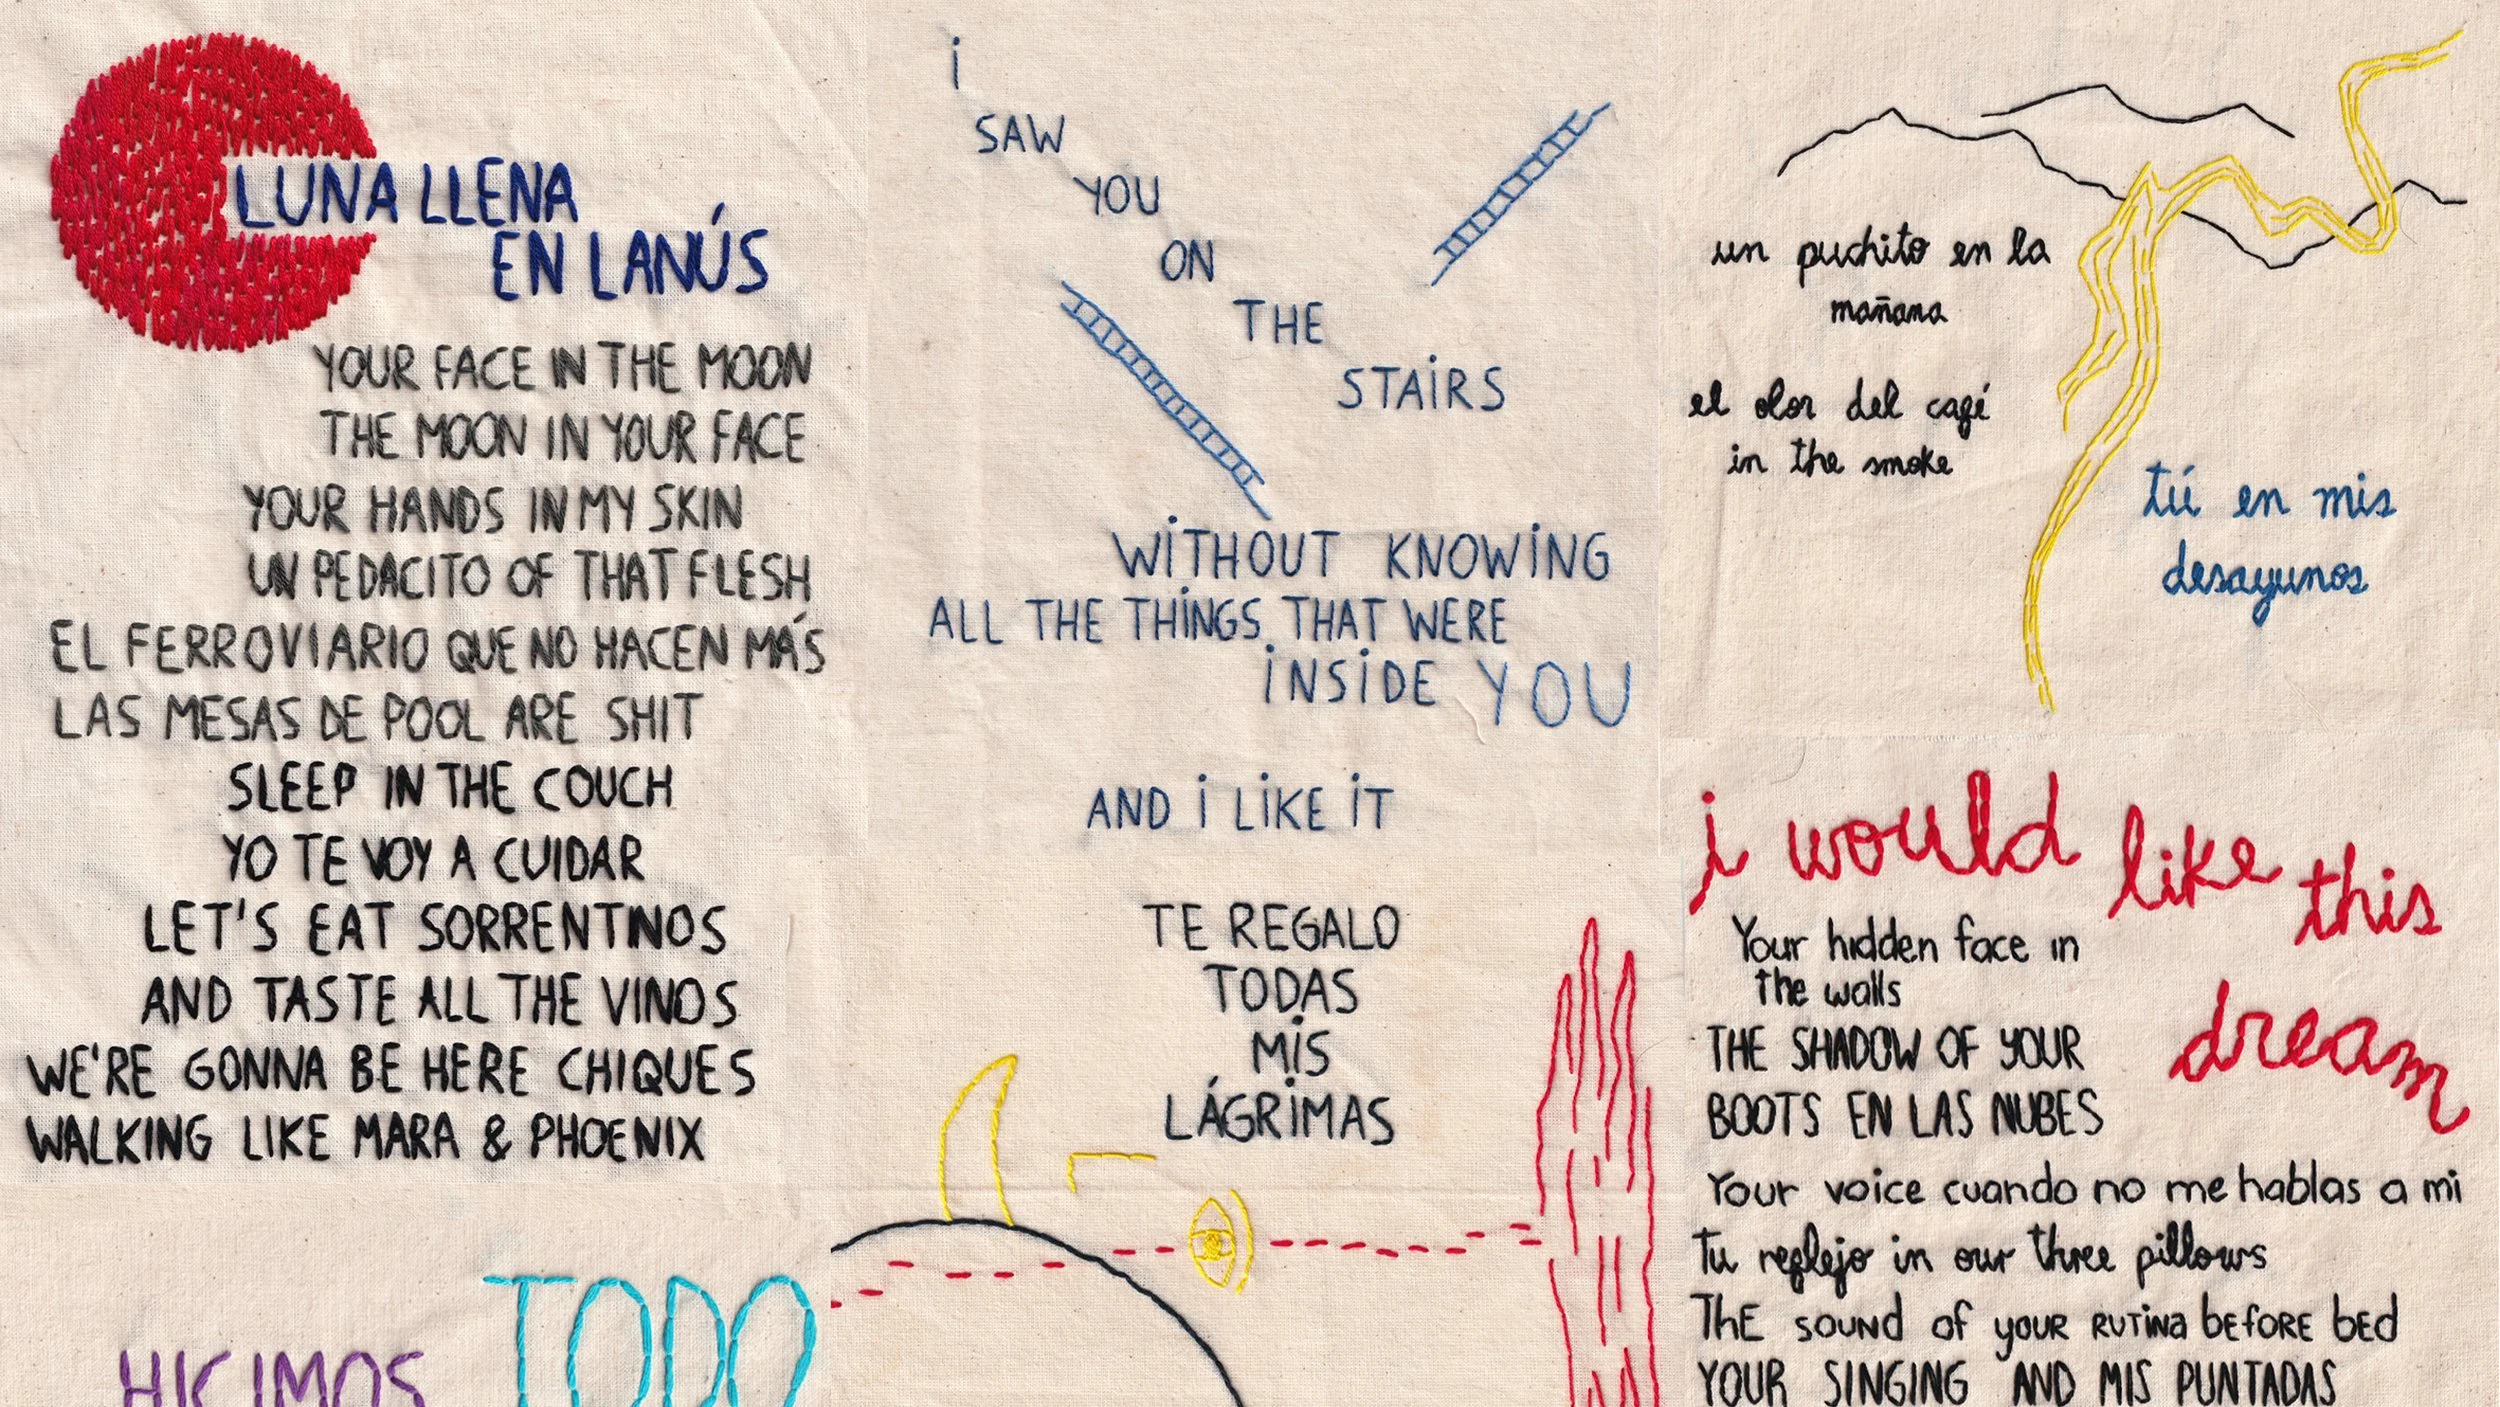 LUNA LLENA
EN LANÚS
YOUR FACE IN THE MOON
THE MOON IN YOUR FACE
YOUR HANDS IN MY SKIN
UN PEDACITO OF THAT FLESH
EL FERROVIARIO QUE NO HACEN MÁS
LAS MESAS DE POOL ARE SHIT
SLEEP IN THE COUCH
YO TE VOY A CUIDAR
LET'S EAT SORRENTINOS
AND TASTE ALL THE VINOS
WE'RE GONNA BE HERE CHIQUES
WALKING LIKE MARA & PHOENIX
HICIMOS TODO
i
SAW
YOU
ON
THE
STAiRS
WiTHOUT KNOWiNG
ALL THE THiNGS THAT WERE
iNSiDE YOU
AND i LiKE iT
TE REGALO
TODAS
MiS
LÁGRiMAS
un puchito en la
mañana
el olor del café
in the smoke
tú en mis
desayunos
i would like this
dream
Your hidden face in
the walls
THE SHADOW OF YOUR
BOOTS EN LAS NUBES
Your voice cuando no me hablas a mi
Tu reflejo in our three pillows
ThE sound of your RUTiNa bEfORE bEd
YOUR SINGING AND MIS PUNTADAS